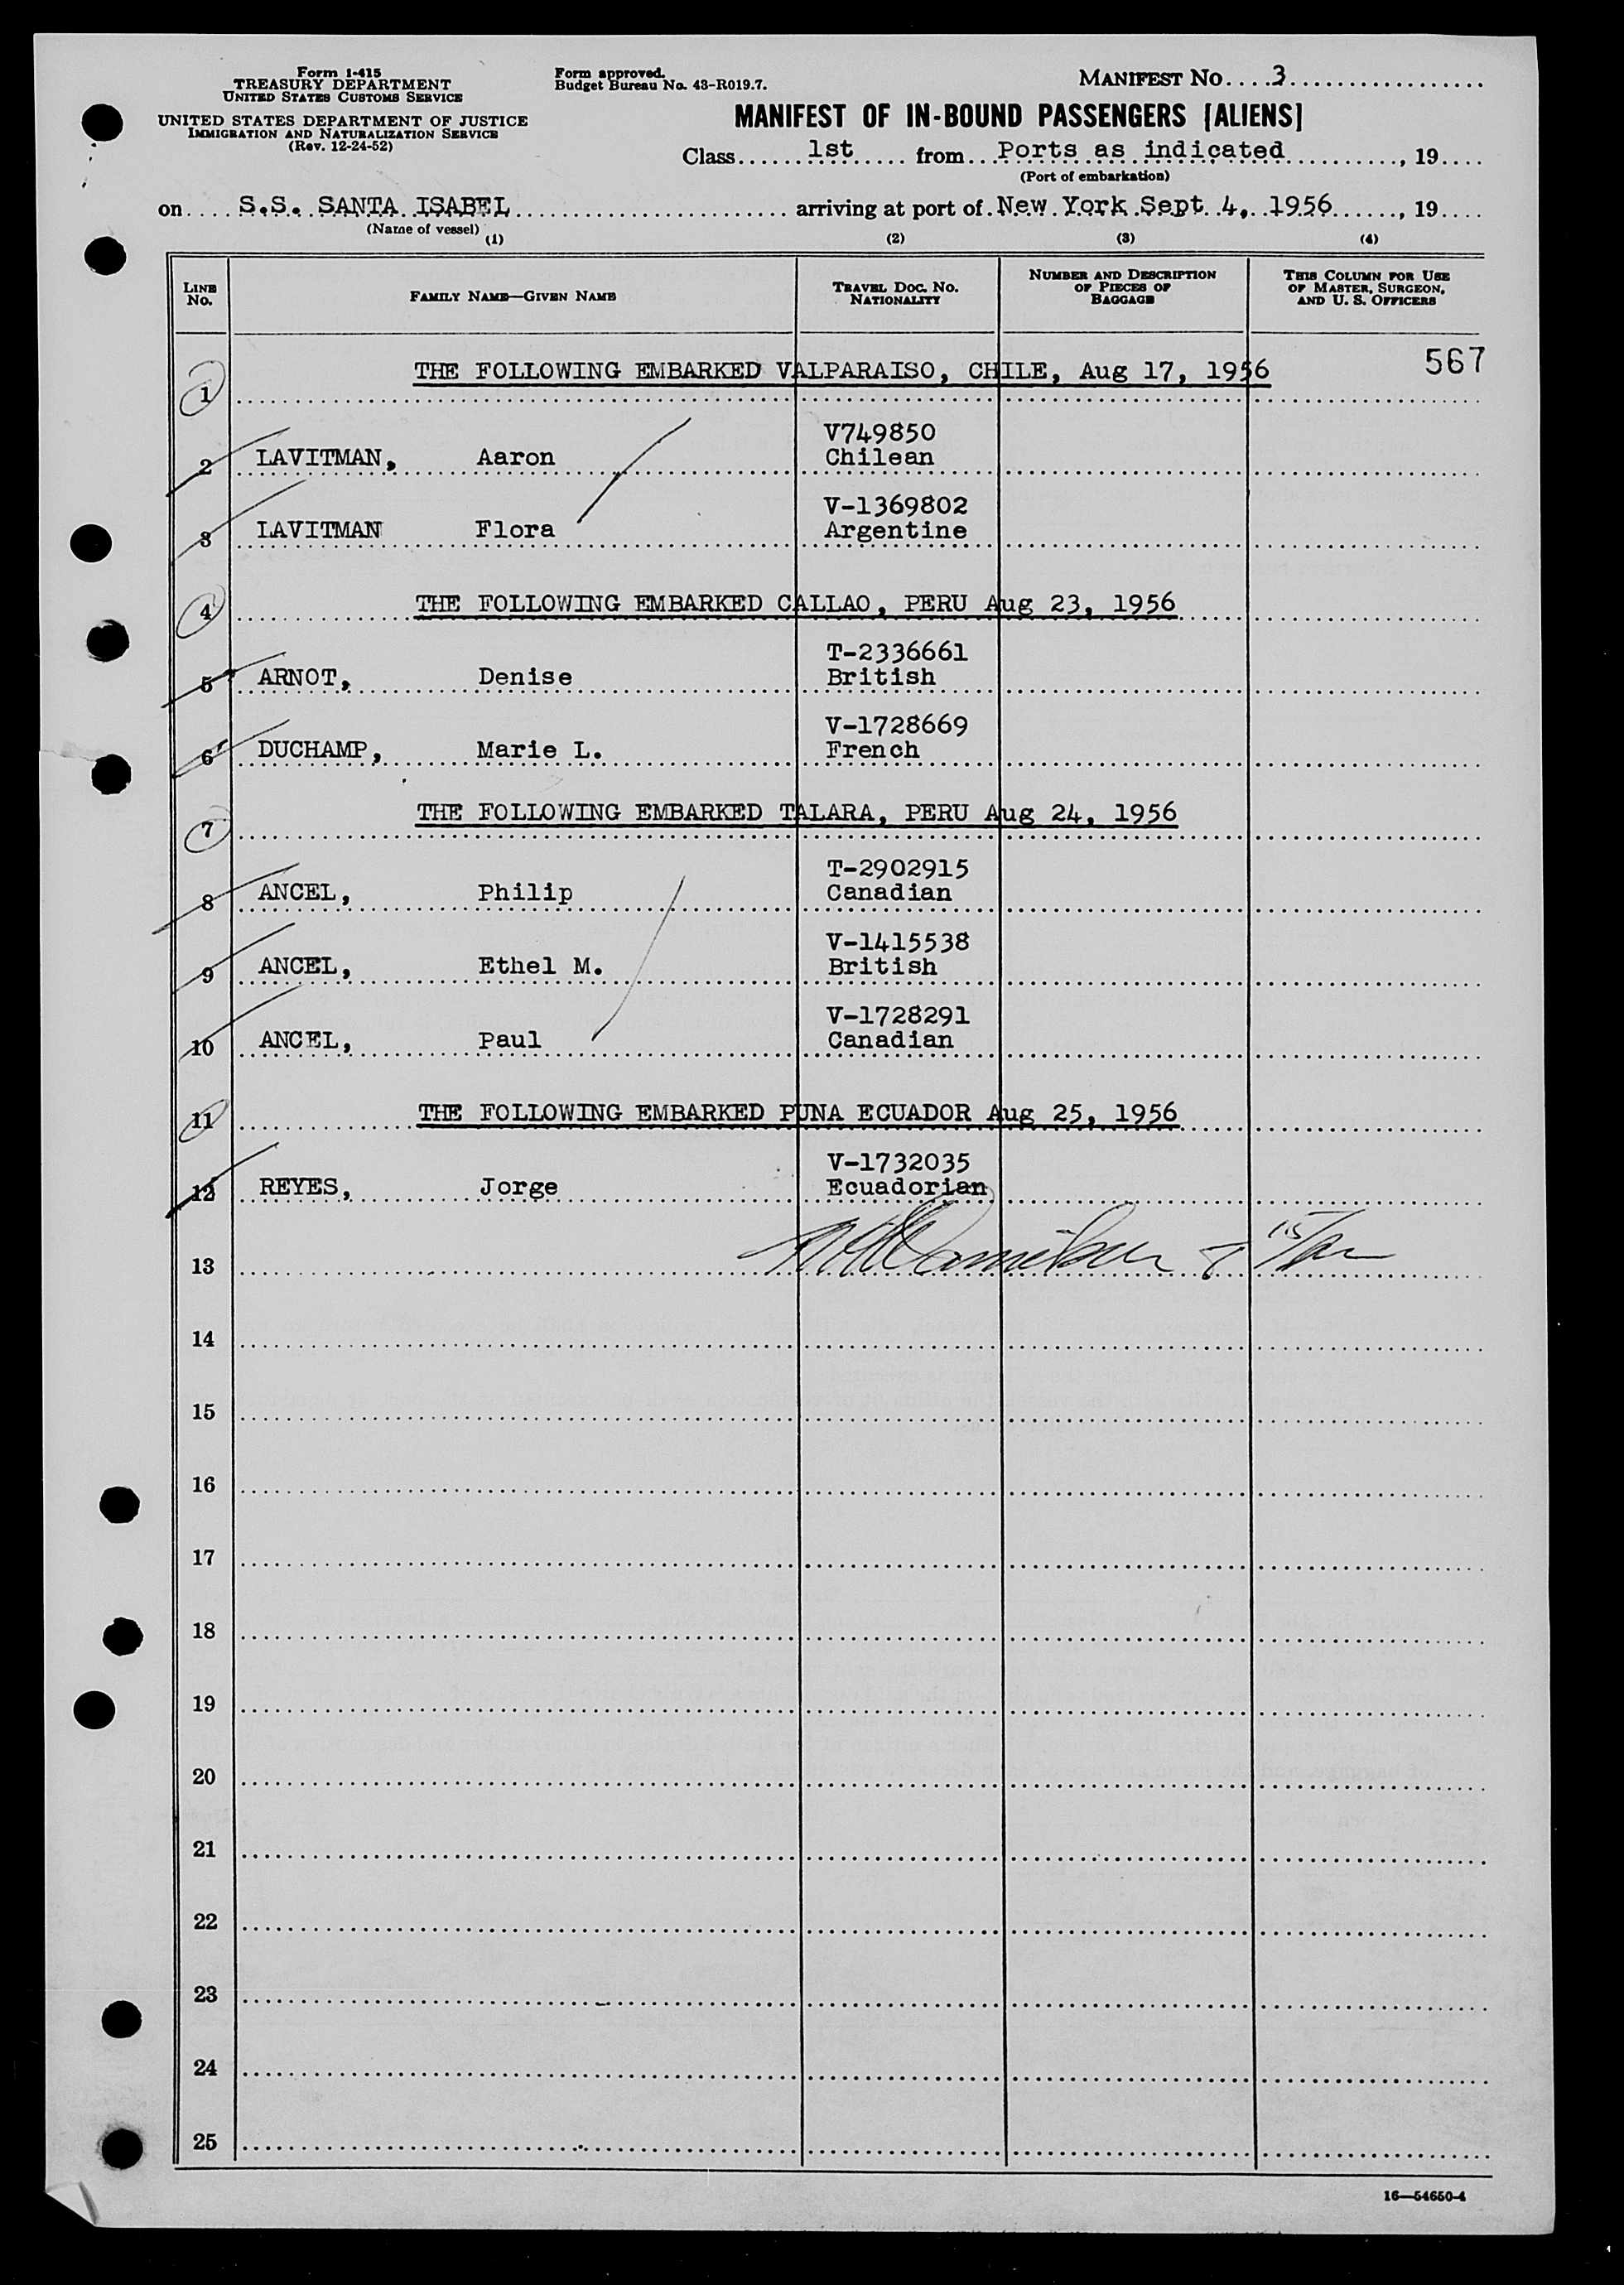 Form I-415
TREASURY DEPARTMENT
UNITED STATES CUSTOMS SERVICE
UNITED STATES DEPARTMENT OF JUSTICE
IMMIGRATION AND NATURALIZATION SERVICE
(Rev. 12-24-52)
Form approved.
Budget Bureau No. 43-R019.7.
MANIFEST NO....3
MANIFEST OF IN-BOUND PASSENGERS [ALIENS]
Class 1st from Ports as indicated, 19
(Port of embarkation)
on S.S. SANTA ISABEL arriving at port of New York Sept 4, 1956, 19
(Name of vessel)
(1) (2) (3) (4)
LINE NO. FAMILY NAME—GIVEN NAME TRAVEL DOC. NO. NATIONALITY NUMBER AND DESCRIPTION OF PIECES OF BAGGAGE THIS COLUMN FOR USE OF MASTER, SURGEON, AND U. S. OFFICERS
1 THE FOLLOWING EMBARKED VALPARAISO, CHILE, Aug 17, 1956 567
V749850
2 LAVITMAN, Aaron Chilean
V-1369802
3 LAVITMAN Flora Argentine
4 THE FOLLOWING EMBARKED CALLAO, PERU Aug 23, 1956
T-2336661
5 ARNOT, Denise British
V-1728669
6 DUCHAMP, Marie L. French
7 THE FOLLOWING EMBARKED TALARA, PERU Aug 24, 1956
T-2902915
8 ANCEL, Philip Canadian
V-1415538
9 ANCEL, Ethel M. British
V-1728291
10 ANCEL, Paul Canadian
11 THE FOLLOWING EMBARKED PUNA ECUADOR Aug 25, 1956
V-1732035
12 REYES, Jorge Ecuadorian
13
14
15
16
17
18
19
20
21
22
23
24
25
16—54650-4